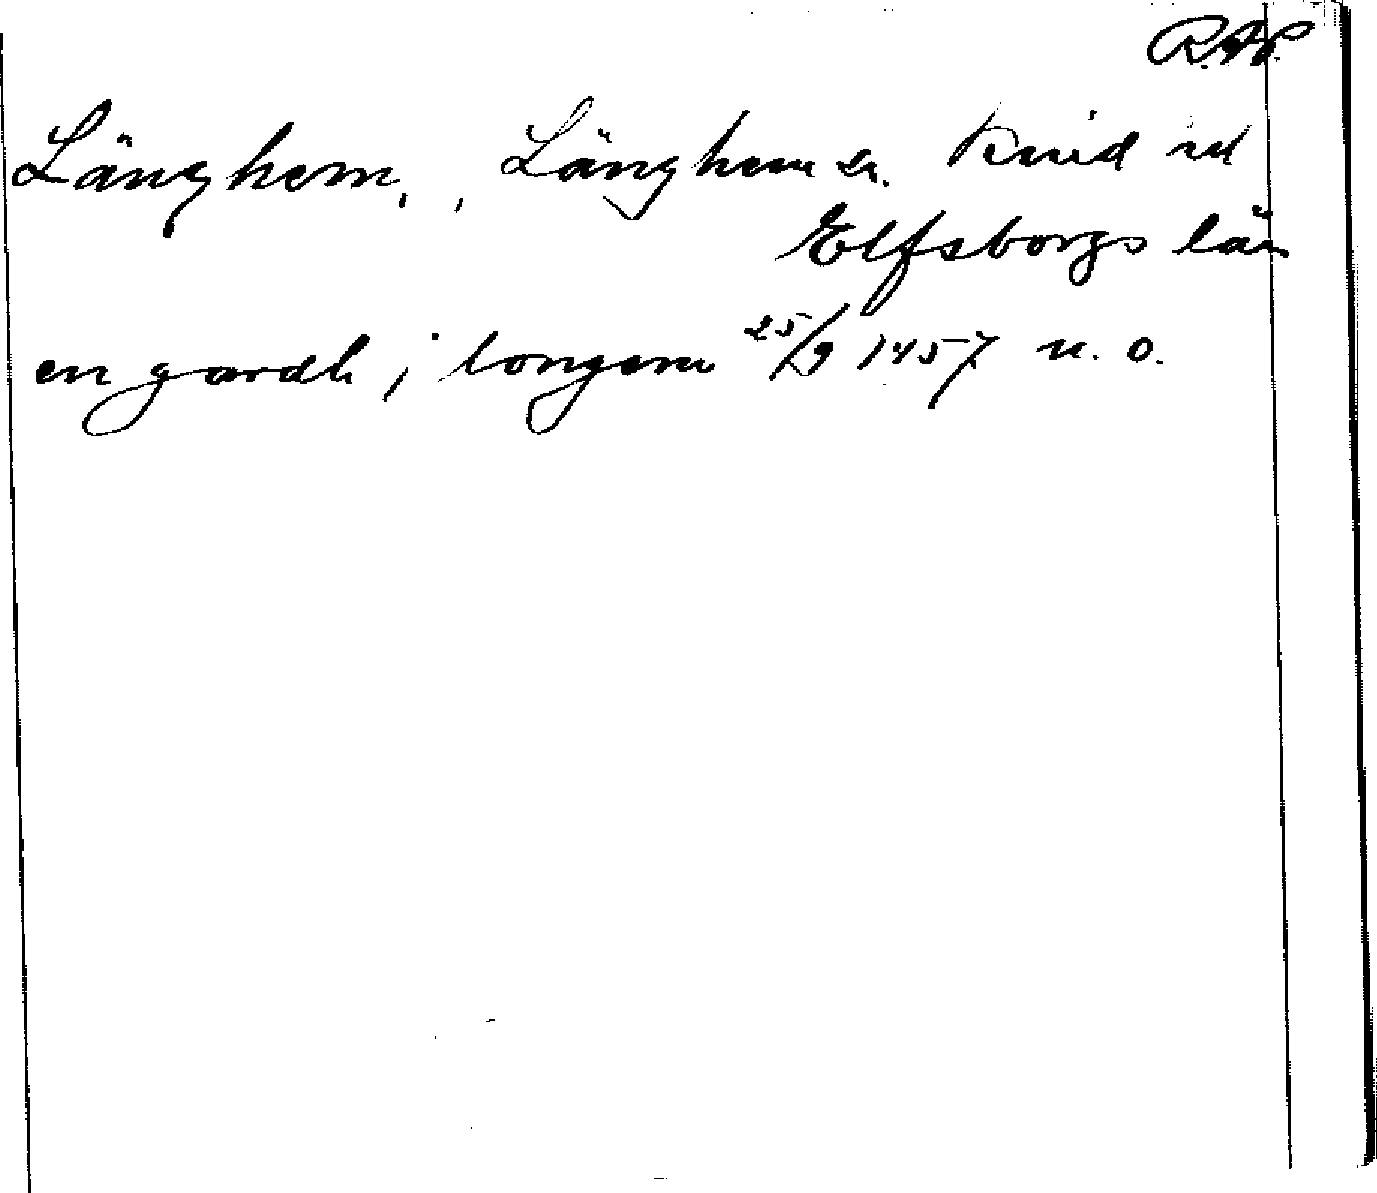 R.A.P.
Länghem, , Länghem sn. Kind hd
Elfsborgs län
en gardh i longem 25/9 1457 n. o.